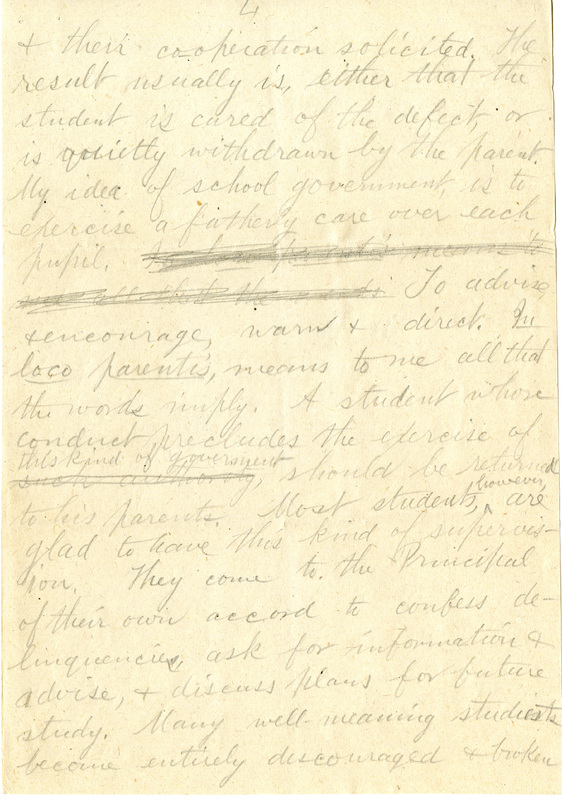 4
& their cooperation solicited. The
result usually is, either that the
student is cured of the defect, or
is quietly withdrawn by the parent.
My idea of school government, is to
exercise a fatherly care over each
pupil. In loco parentis means to
me all that the words To advise
& encourage, warn & direct. In
loco parentis, means to me all that
the words imply. A student whose
conduct precludes the exercise of
this kind of government
such authority, should be returned
however,
to his parents. Most students, are
glad to have this kind of supervis-
ion. They come to the Principal
of their own accord to confess de-
linquencies, ask for information &
advise, & discuss plans for future
study. Many well-meaning students
become entirely discouraged & broken